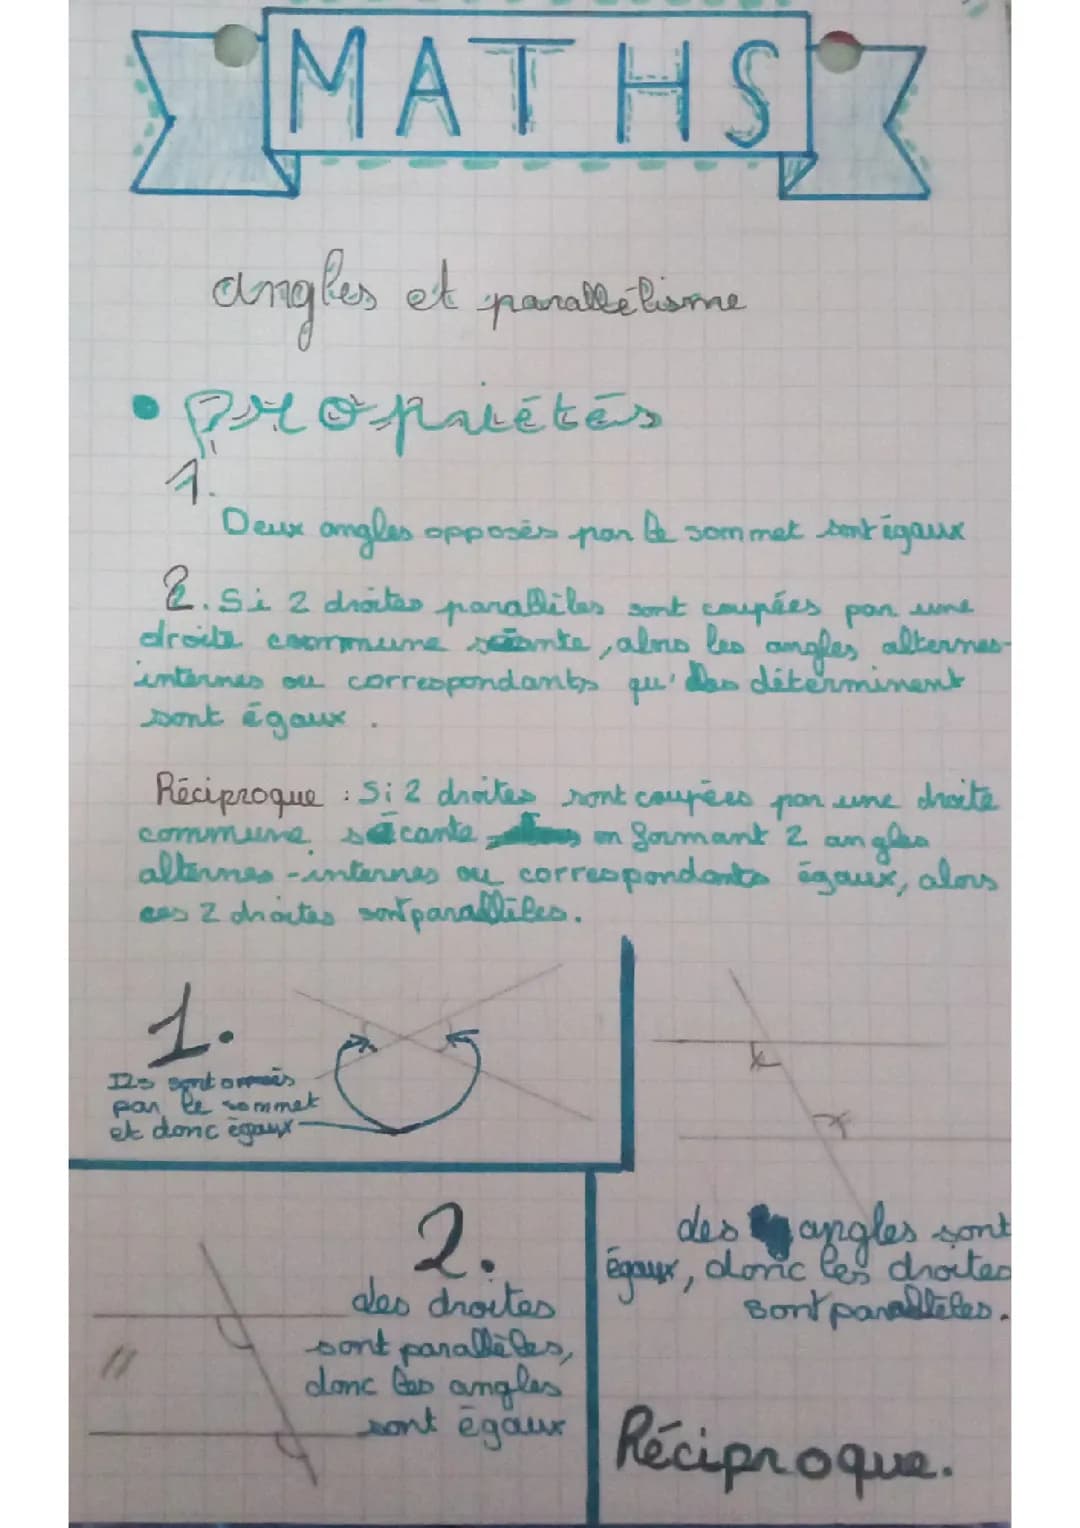 MATHS
angles et parallélisme
• Propriétés
1.
Deux angles opposés par le sommet sont égaux
2. Si 2 droites parallèles sont coupées par une
droite commune sécante, alors les angles alternes-
internes ou correspondants qu'elles déterminent
sont égaux.
Réciproque : Si 2 droites sont coupées par une droite
commune sécante en formant 2 angles
alternes-internes ou correspondants égaux, alors
ces 2 droites sont parallèles.
1.
Ils sont
par le sommet
et donc égaux
2.
des droites
sont parallèles,
donc les angles
sont égaux
des angles sont
égaux, donc les droites
sont parallèles.
Réciproque.